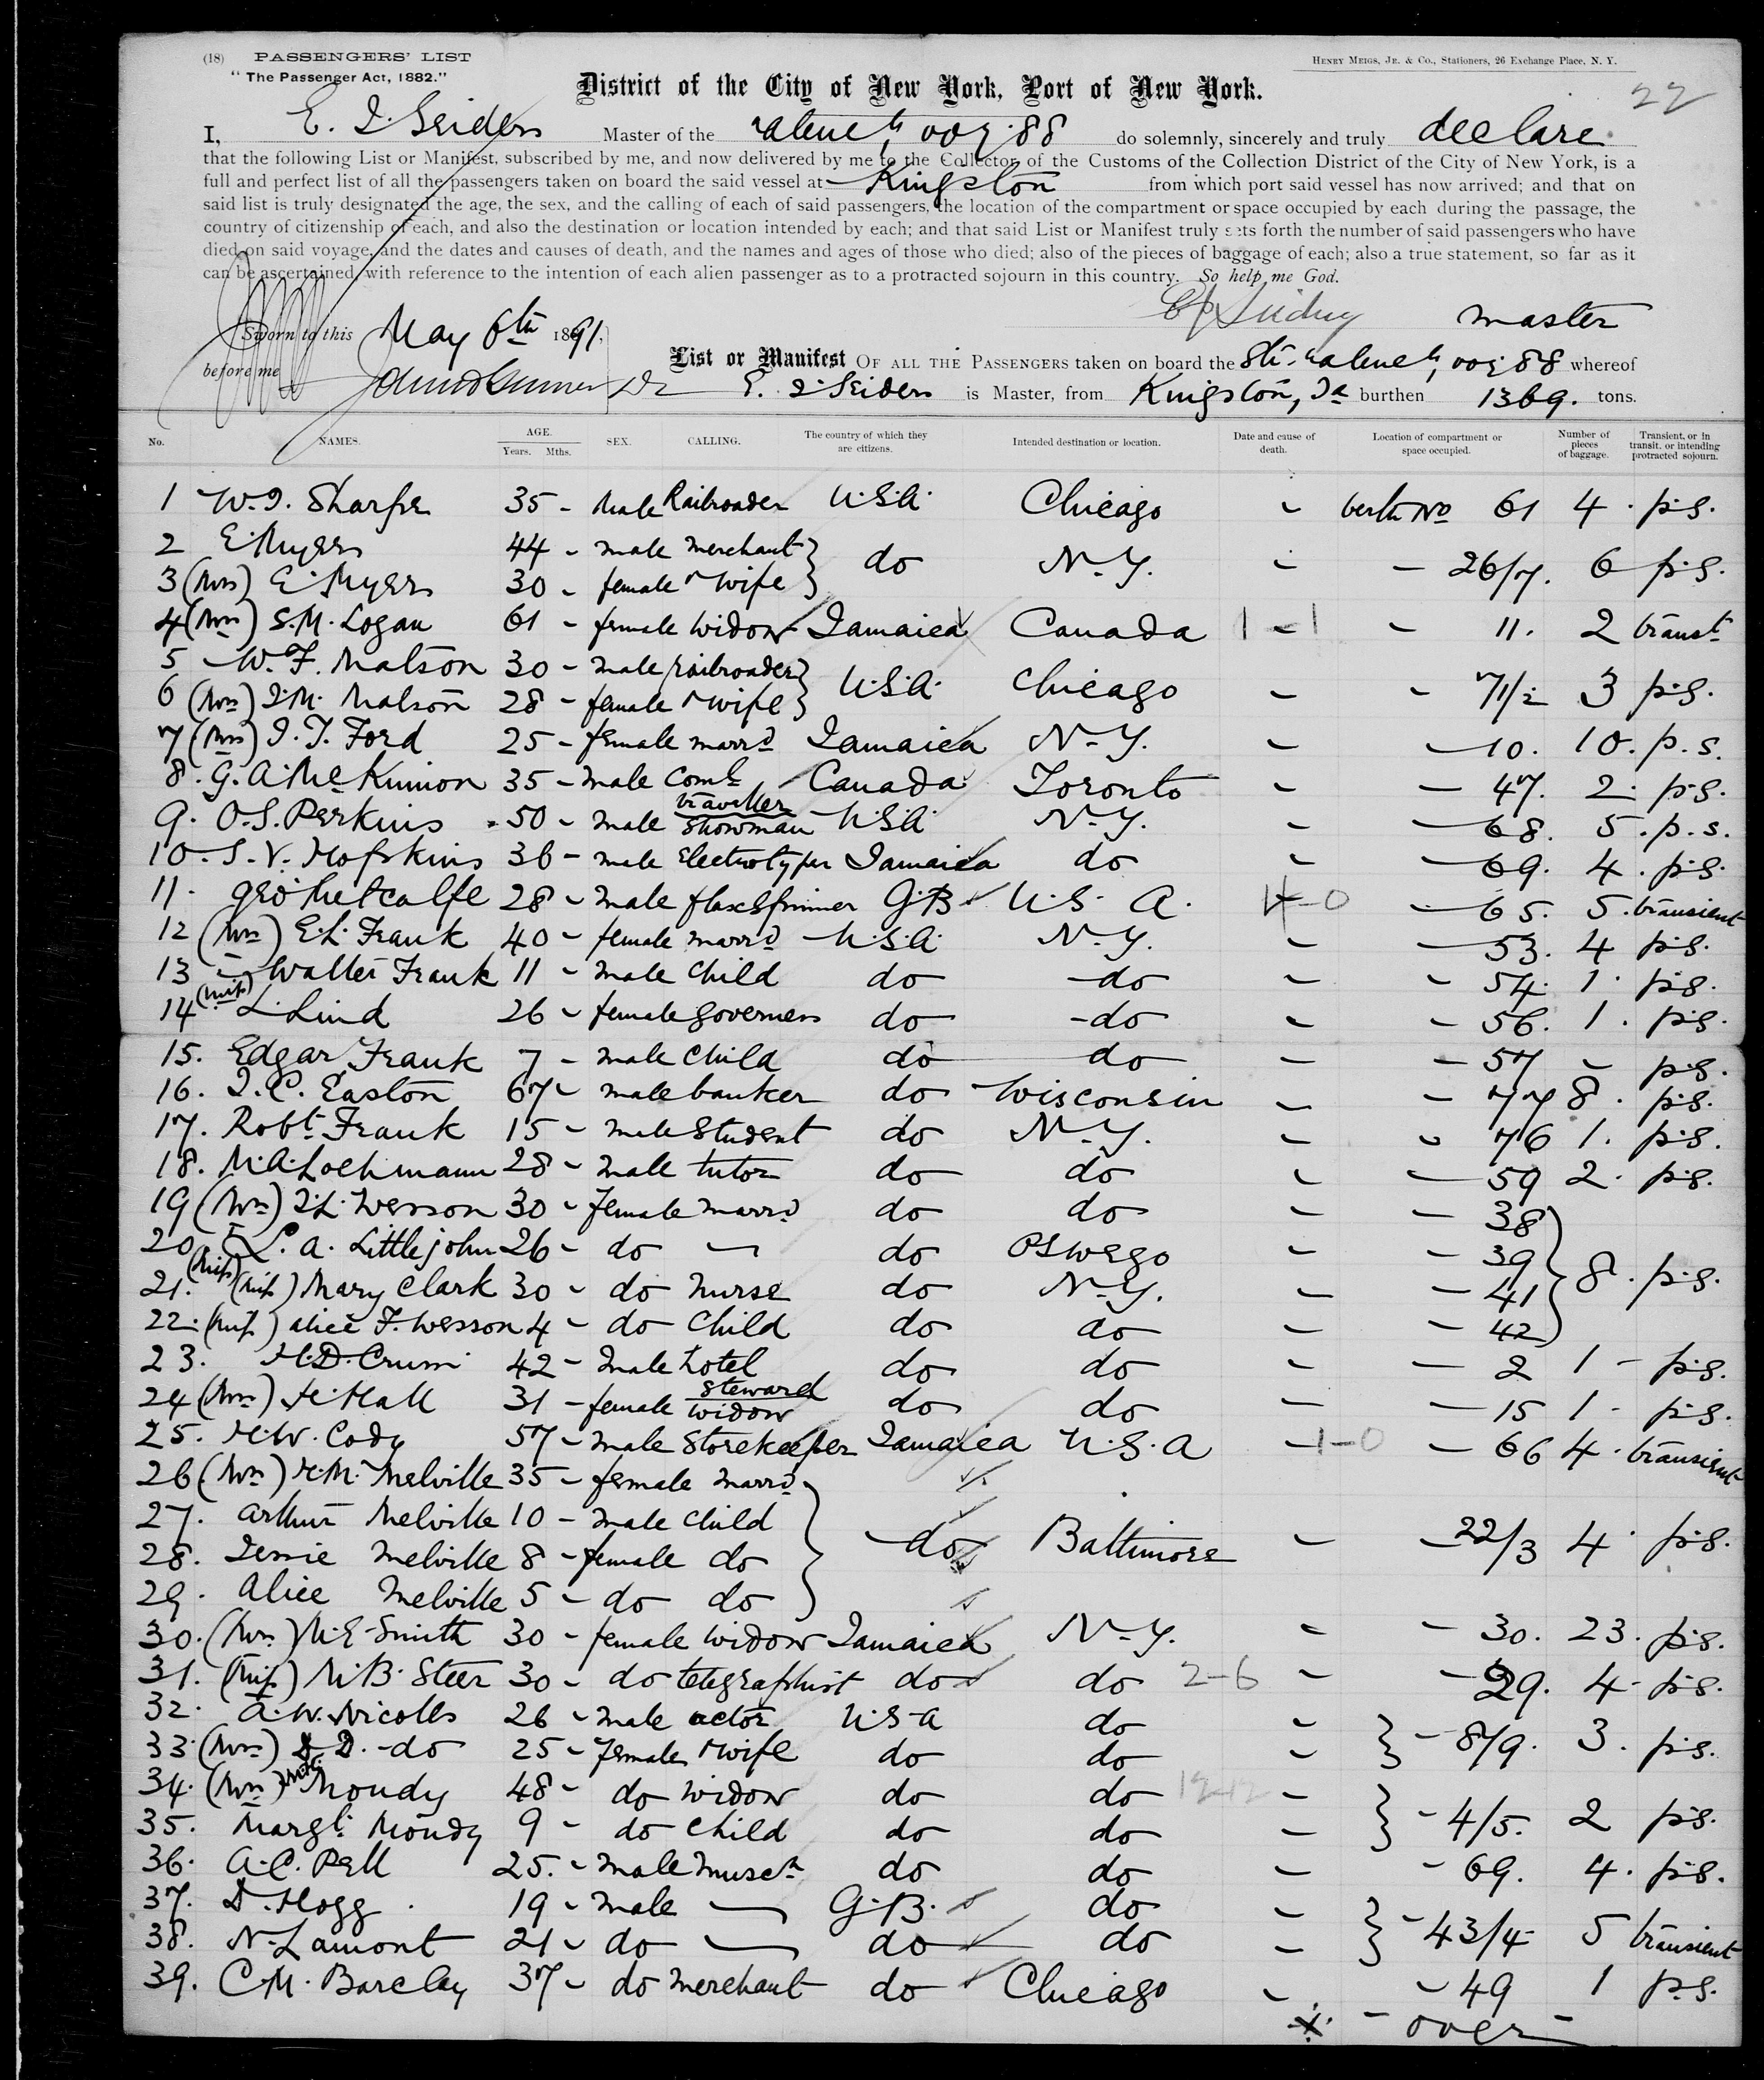 (18) PASSENGERS' LIST
HENRY MEIGS, JR. & CO., Stationers, 26 Exchange Place, N. Y.
"The Passenger Act, 1882."
District of the City of New York, Port of New York.
22
I, E. I. Seiders Master of the do solemnly, sincerely and truly declare
that the following List or Manifest, subscribed by me, and now delivered by me to the Collector of the Customs of the Collection District of the City of New York, is a
full and perfect list of all the passengers taken on board the said vessel at Kingston from which port said vessel has now arrived; and that on
said list is truly designated the age, the sex, and the calling of each of said passengers, the location of the compartment or space occupied by each during the passage, the
country of citizenship of each, and also the destination or location intended by each; and that said List or Manifest truly sets forth the number of said passengers who have
died on said voyage, and the dates and causes of death, and the names and ages of those who died; also of the pieces of baggage of each; also a true statement, so far as it
can be ascertained, with reference to the intention of each alien passenger as to a protracted sojourn in this country. So help me God.
master
Sworn to this May 6th 1891,
before me
List or Manifest OF ALL THE PASSENGERS taken on board the whereof
E. I. Seiders is Master, from Kingston, Ja burthen 1369. tons.
No. NAMES. AGE. Years. Mths. SEX. CALLING. The country of which they are citizens. Intended destination or location. Date and cause of death. Location of compartment or space occupied. Number of pieces of baggage. Transient, or in transit, or intending protracted sojourn.
1 W. I. Sharpe 35 - male Railroader U.S.A. Chicago - berth No 61 4 . p.s.
2 E. Myers 44 - male merchant } do N.Y. - - 26/7. 6 p.s.
3 (Mrs) E. Myers 30 - female wife }
4 (Mrs) S. M. Logan 61 - female widow Jamaica Canada 1-1 - 11. 2 transt
5 W. F. Matson 30 - male railroader } U.S.A. Chicago - - 71/2 3 p.s.
6 (Mrs) I. M. Matson 28 - female wife }
7 (Mrs) I. T. Ford 25 - female marrd Jamaica N.Y. - - 10. 10. p.s.
8. G. A. McKinnon 35 - male Coml traveller Canada Toronto - - 47. 2. p.s.
9. O. S. Perkins 50 - male showman U.S.A. N.Y. - - 68. 5. p.s.
10. S. V. Hopkins 36 - male Electrotyper Jamaica do - - 69. 4. p.s.
11. Geo Metcalfe 28 - male flax spinner G.B U.S.A. - 65. 5. transient
12 (Mrs) E. L. Frank 40 - female marrd U.S.A. N.Y. - - 53. 4 p.s.
13 - Walter Frank 11 - male child do do - - 54. 1. p.s.
14 (Miss) L. Lind 26 - female governess do do - - 56. 1. p.s.
15. Edgar Frank 7 - male child do do - - 57 - p.s.
16. I. C. Easton 67 - male banker do Wisconsin - - 77 8. p.s.
17. Robt Frank 15 - male student do N.Y. - - 76 1. p.s.
18. M. A. Loehmann 28 - male tutor do do - - 59 2. p.s.
19 (Mrs) I. L. Wesson 30 - female marrd do do - - 38 }
20. (Miss) L. A. Littlejohn 26 - do - do Oswego - - 39 } 8. p.s.
21. (Miss) Mary Clark 30 - do nurse do N.Y. - - 41 }
22. (Miss) Alice F. Wesson 4 - do child do do - - 42 }
23. H. D. Crum 42 - male hotel steward do do - - 2 1 - p.s.
24 (Mrs) H. Hall 31 - female widow do do - - 15 1 - p.s.
25. H. W. Cody 57 - male storekeeper Jamaica U.S.A 1-0 - 66 4. transient
26 (Mrs) H. M. Melville 35 - female marrd }
27. Arthur Melville 10 - male child } do Baltimore - - 22/3 4. p.s.
28. Jessie Melville 8 - female do }
29. Alice Melville 5 - do do }
30. (Mrs) M. E. Smith 30 - female widow Jamaica N.Y. - - 30. 23. p.s.
31. (Miss) M. B. Steer 30 - do telegraphist do do 2-6 - - 29. 4 - p.s.
32. A. W. Nicolls 26 - male actor U.S.A do - } - 8/9. 3. p.s.
33. (Mrs) D. - do 25 - female wife do do - }
34. (Mrs) Moudy 48 - do widow do do - } - 4/5. 2 p.s.
35. Margt Moudy 9 - do child do do - }
36. A. C. Pell 25. - male do do - - 69. 4. p.s.
37. D. Hogg 19 - male - G.B. do - } - 43/4 5 transient
38. N. Lamont 21 - do - do do - }
39. C. M. Barclay 37 - do merchant do Chicago - - 49 1 p.s.
- over -